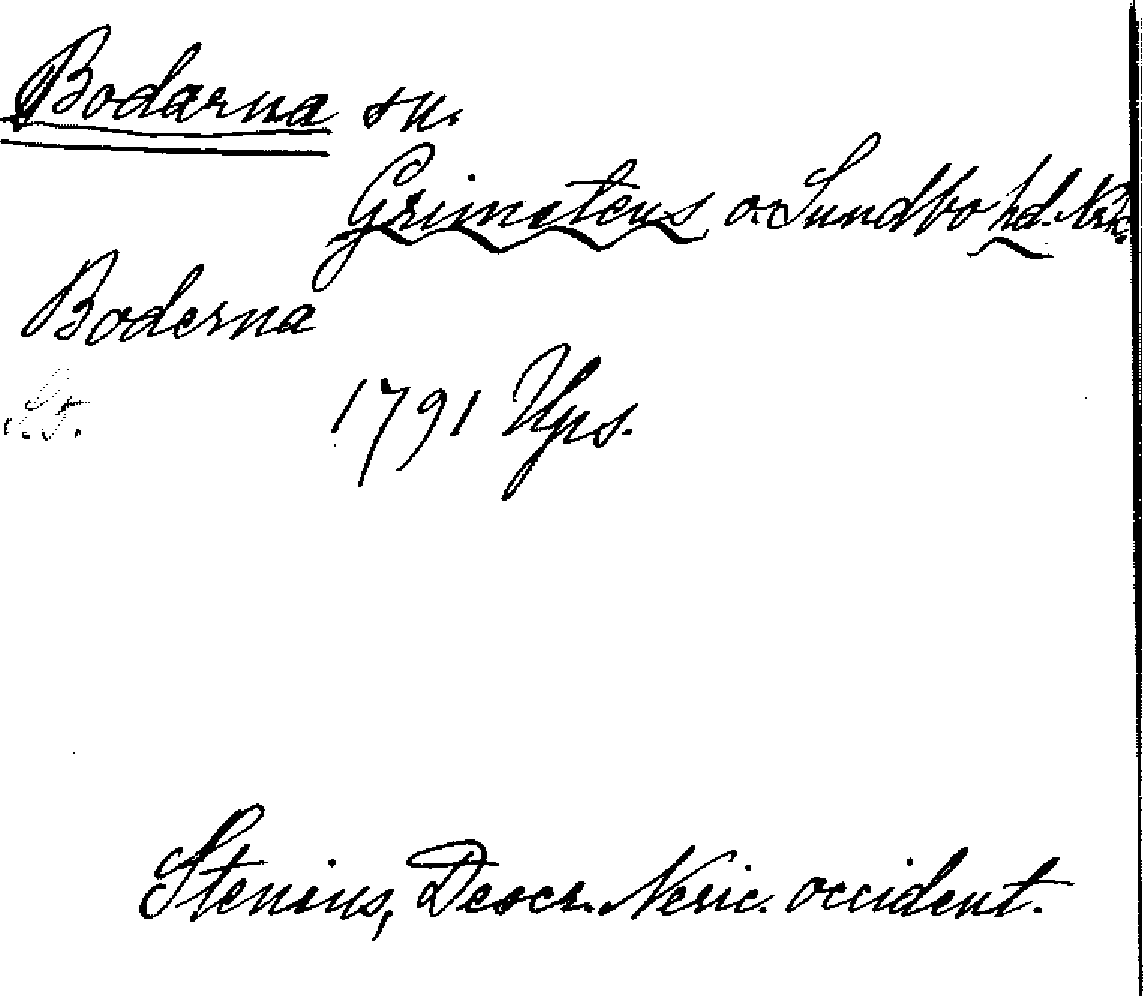 Bodarna sn.
Grimstens o. Sundbo hd. Nrk.
Boderna
1791 Ups.
Stenius, Descr. Neric. occident.